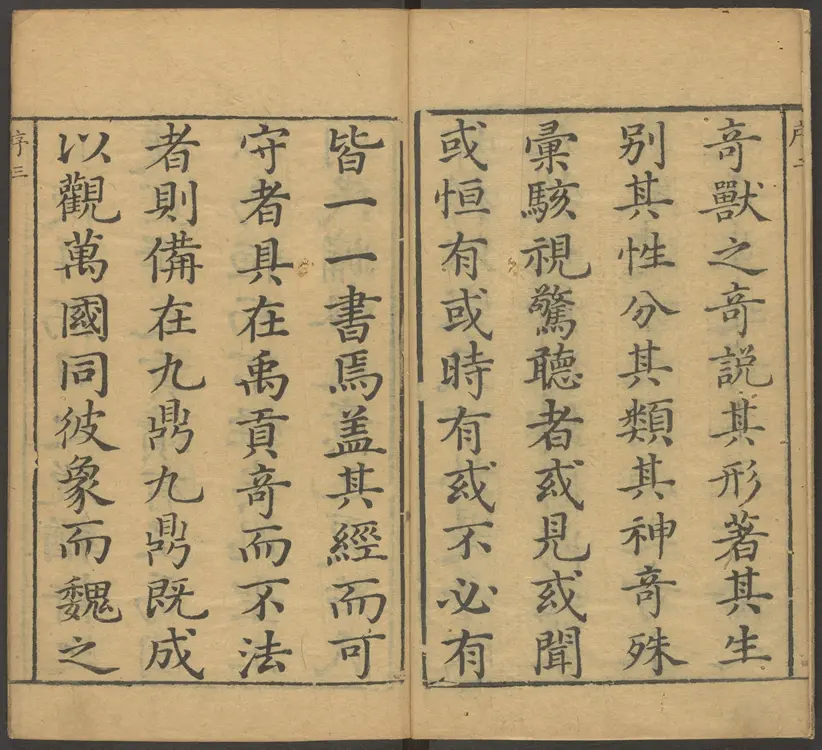 奇獸之奇說其形著其生
別其性分其類其神奇殊
彙駭視驚聽者或見或聞
或恒有或時有或不必有
皆一一書焉蓋其經而可
守者具在禹貢奇而不法
者則備在九鼎九鼎既成
以觀萬國同彼象而魏之
序三